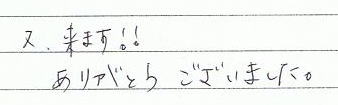 又、来ます!!
ありがとう ございました。